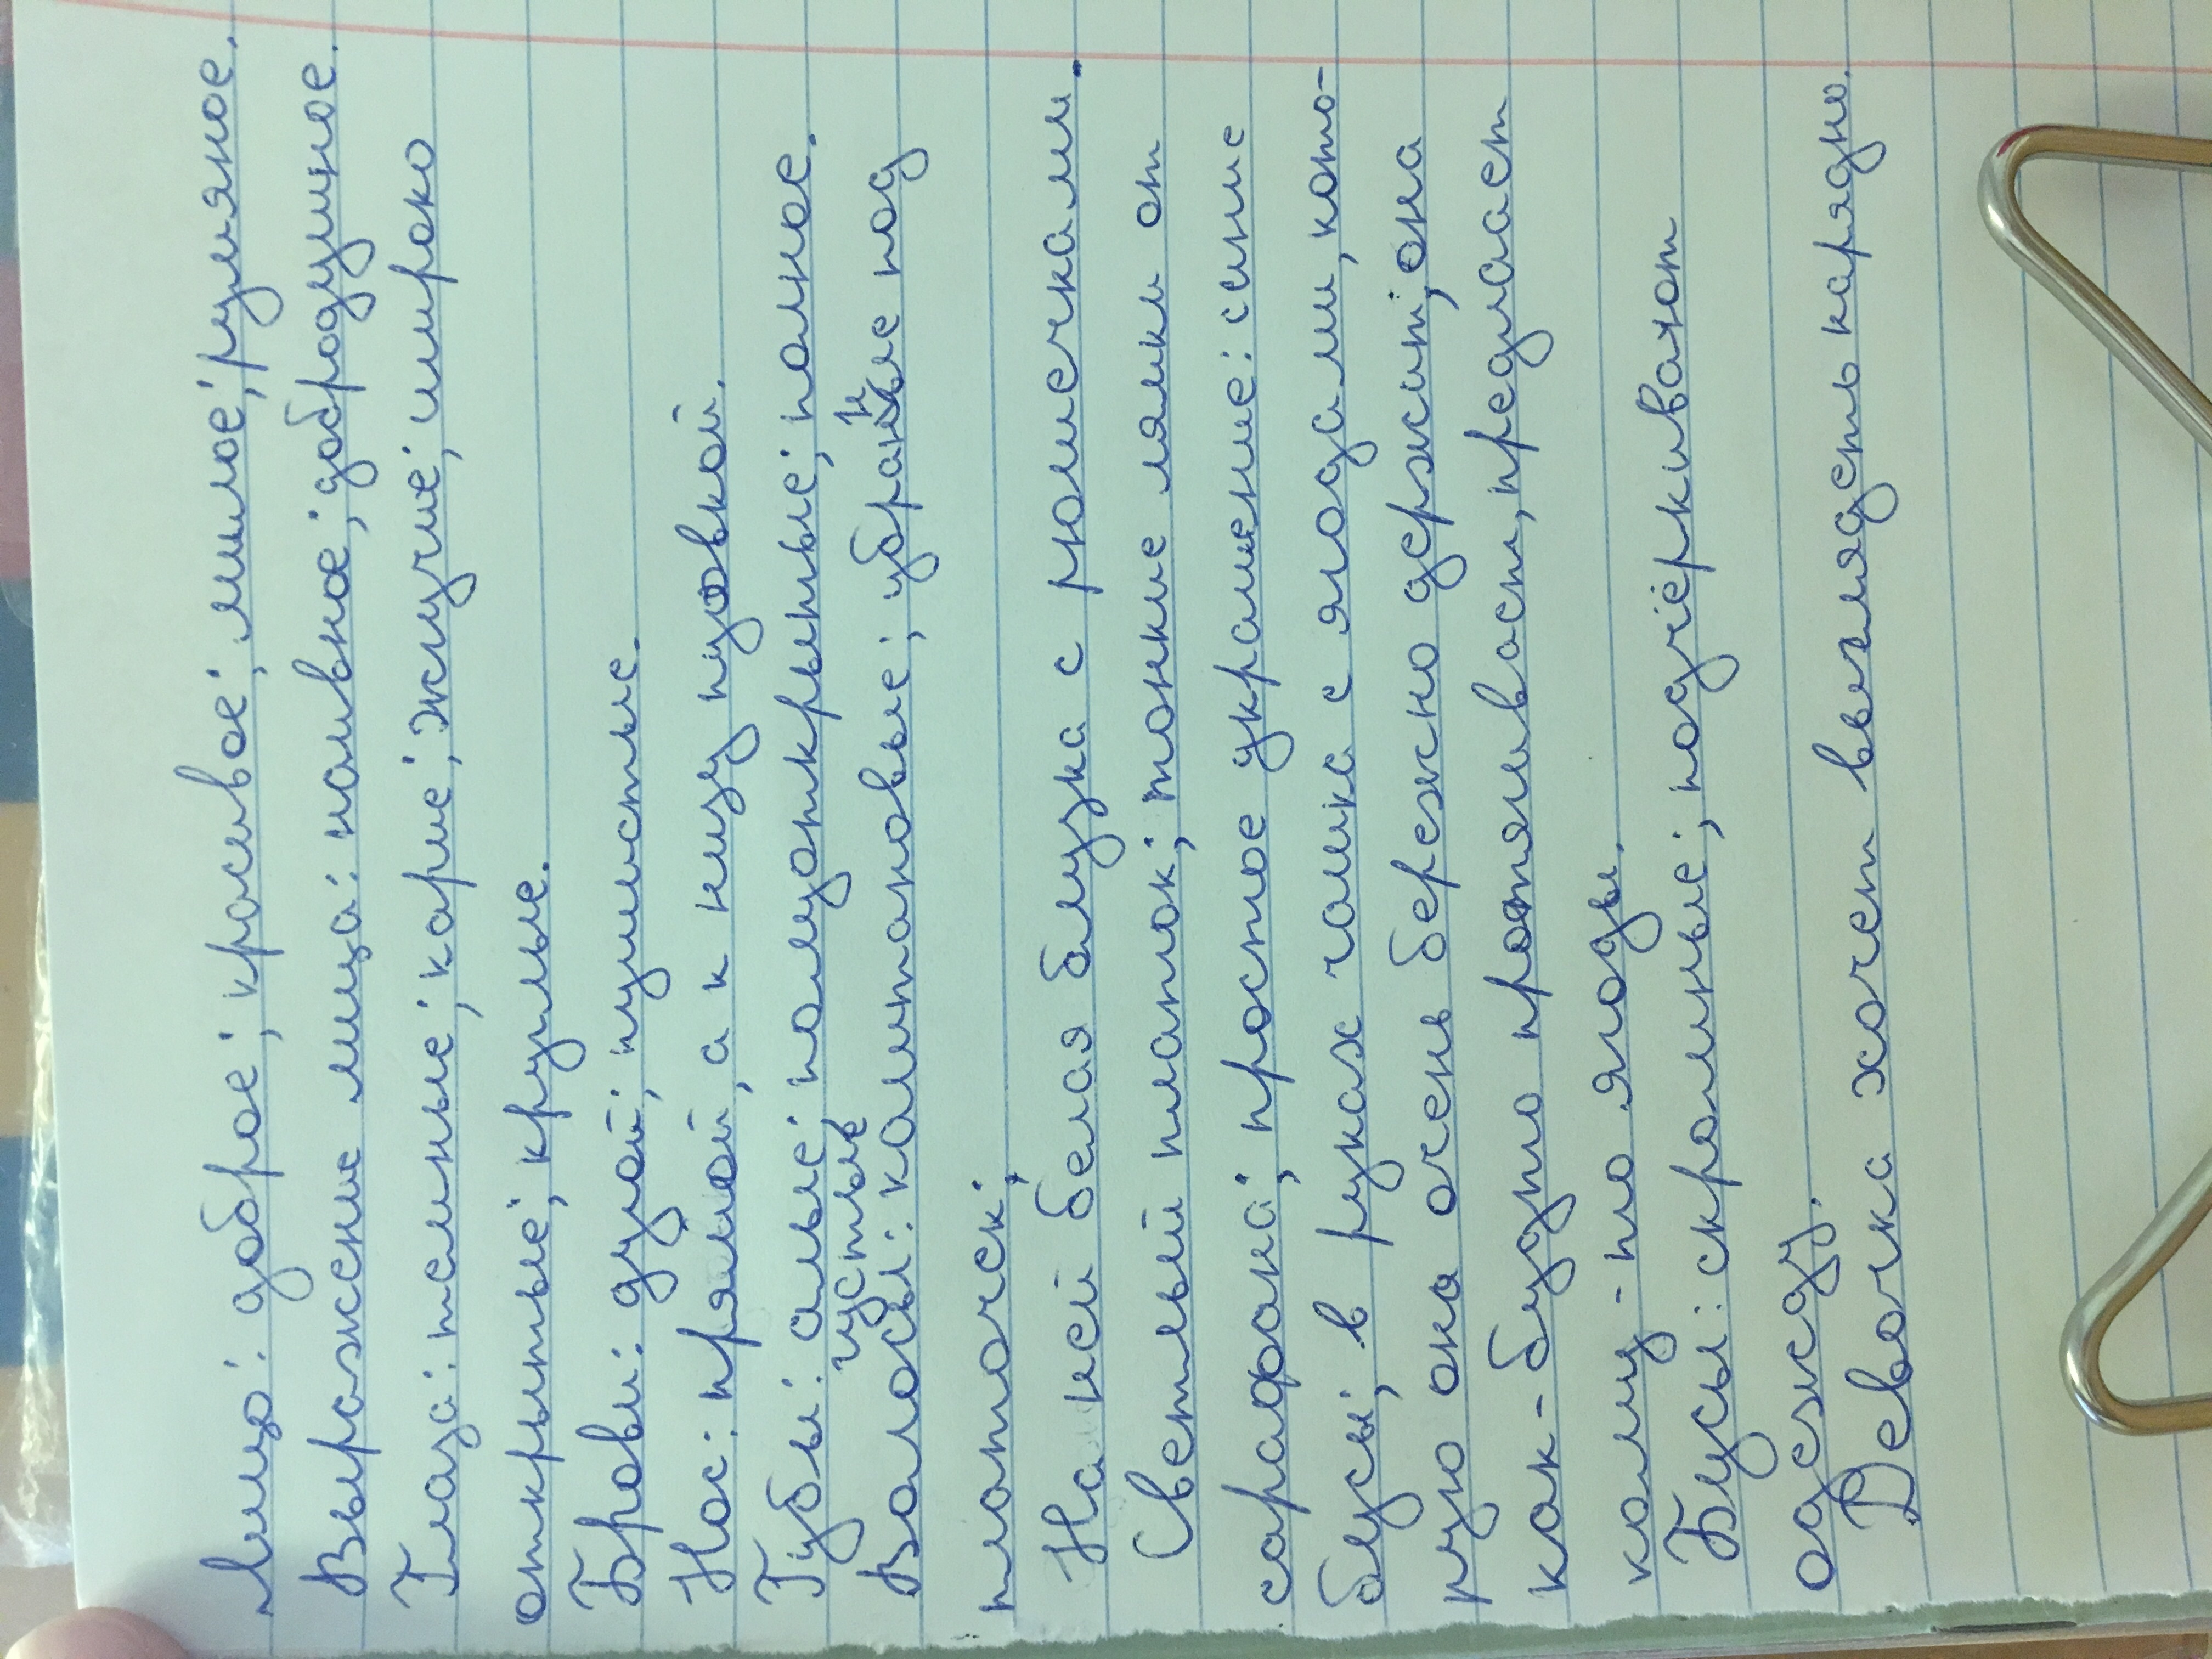 Лицо: доброе; красивое; милое; румяное.
Выражение лица: наивное; добродушное.
Глаза: темные; карие; жгучие; широко
открытые; круглые.
Брови: дугой; пушистые.
Нос: прямой, а к низу пуговкой.
Губы: алые; полуоткрытые; полное.
густые
Волосы: каштановые; убранные под
платочек;
На ней белая блузка с рюшечками.
Светлый платок; тонкие лямки от
сарафана; простое украшение: синие
бусы; в руках чашка с ягодами, кото-
рую она очень бережно держит; она
как-будто протягивает, предлагает
кому-то ягоды.
Бусы: скромные; подчёркивают
одежду.
Девочка хочет выглядеть нарядно.